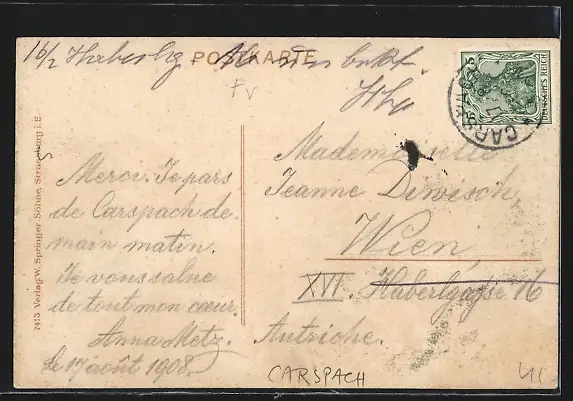 16/2 Haberlg
POSTKARTE
Fv
5 5
DEUTSCHES REICH
CARSPACH
7413 Verlag W. Springer Söhne, Strassburg i. E
Merci. Je pars
de Carspach de
main matin.
Je vous salue
de tout mon coeur.
Anna Metz.
Le 17 août 1908.
Mademoiselle
Jeanne Diwisch,
Wien,
XVI. Haberlgasse 16
Autriche.
CARSPACH